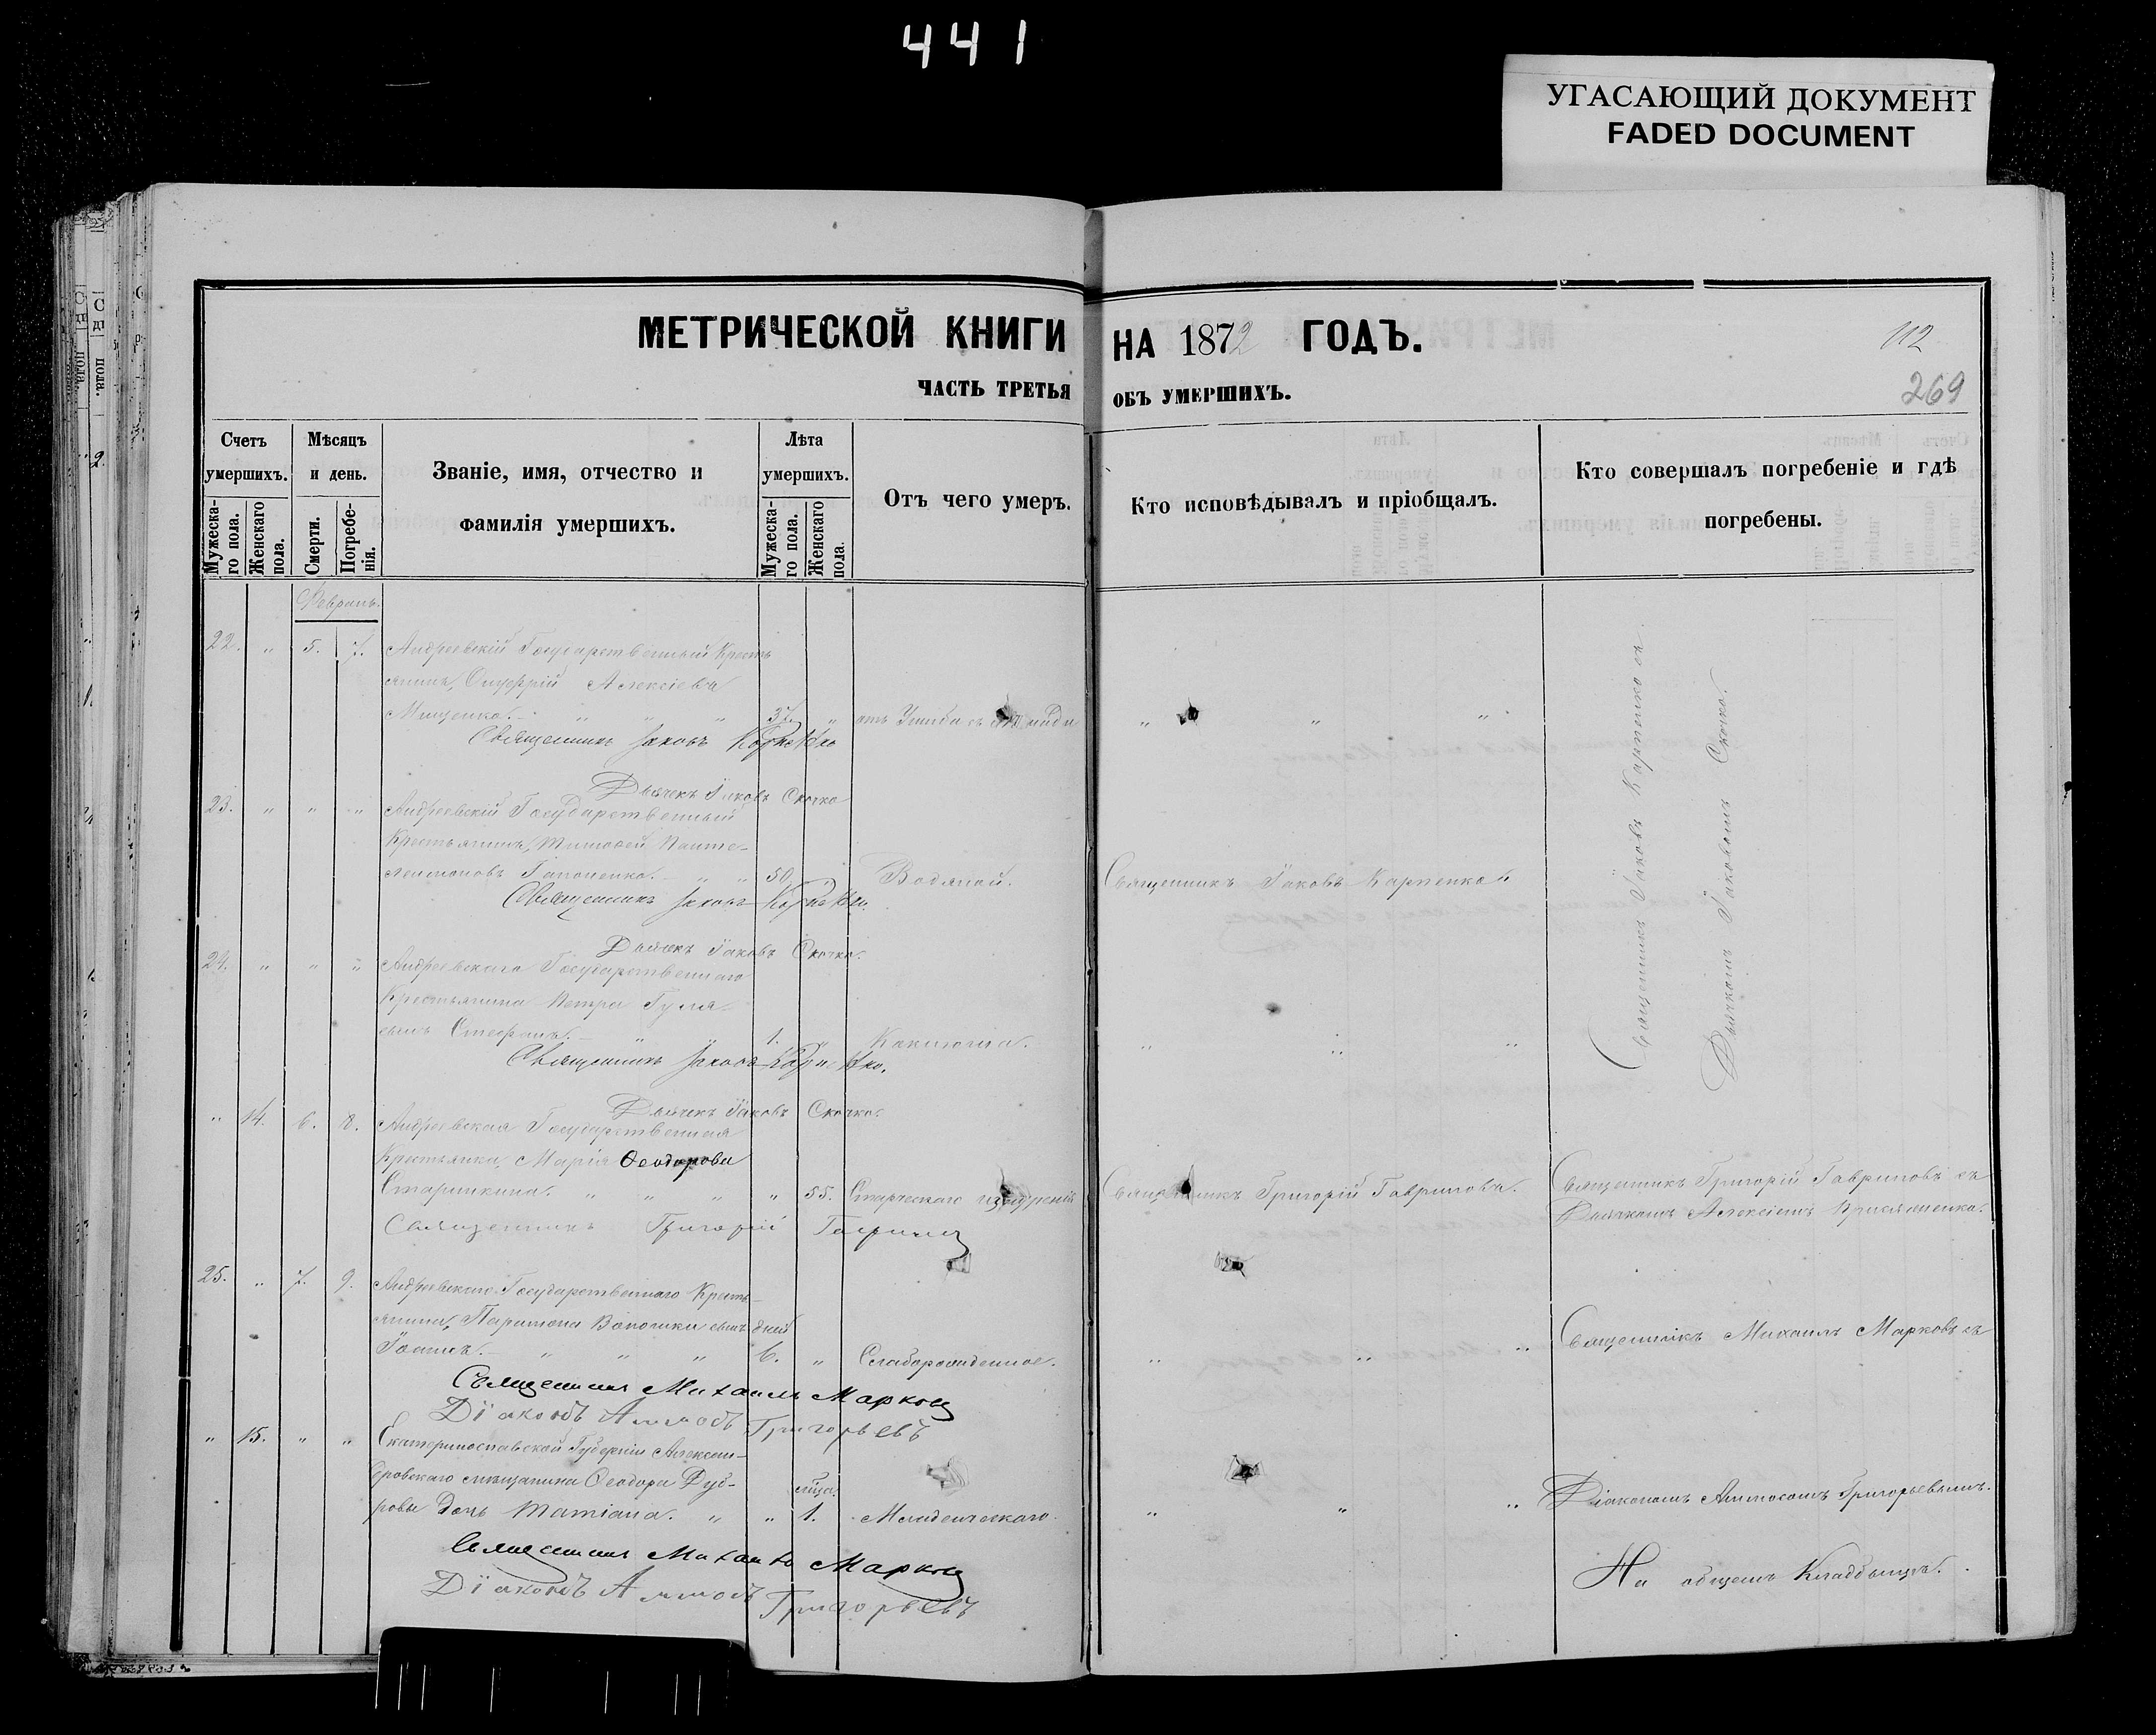 441
УГАСАЮЩИЙ ДОКУМЕНТ
FADED DOCUMENT
МЕТРИЧЕСКОЙ КНИГИ НА 1872 ГОДЪ.
112
ЧАСТЬ ТРЕТЬЯ ОБЪ УМЕРШИХЪ.
269
Счетъ умершихъ.
Мужеска-го пола.
Женскаго пола.
Мѣсяцъ и день.
Смерти.
Погребе-нія.
Званіе, имя, отчество и фамилія умершихъ.
Лѣта умершихъ.
Мужеска-го пола.
Женскаго пола.
Отъ чего умеръ.
Кто исповѣдывалъ и пріобщалъ.
Кто совершалъ погребеніе и гдѣ погребены.
Февраль.
22. " 5. 7. Андреевскій Государственный Кресть
янинъ, Онуфрій Алексіевъ
Мищенко. " " " 37. " отъ " " "
Священникъ Іаковъ Карпенко
Дьячекъ Іаковъ Скочко
23. " " " Андреевскій Государственный
Крестьянинъ, Тимофей Панте-
леимоновъ Гапоненко. " " 50. " Водяной. Священникъ Іаковъ Карпенко.
Священникъ Іаковъ Карпенко.
Дьячекъ Іаковъ Скочко.
Священникъ Іаковъ Карпенко съ
Дьячкомъ Іаковомъ Скочко.
24. " " " Андреевскаго Государственнаго
Крестьянина Петра Гуля
сынъ Стефанъ. " 1. " Коклюша. " " "
Священникъ Іаковъ Карпенко.
Дьячекъ Іаковъ Скочко.
" 14. 6. 8. Андреевская Государственная
Крестьянка, Марія Ѳеодорова
Старишкина. " " " " 55. Старческаго изнуренія Священникъ Григорій Гавриловъ. Священникъ Григорій Гавриловъ съ
Дьячкомъ Алексіемъ
Священникъ Григорій Гаврилов
25. " 7. 9. Андреевскаго Государственнаго Кресть-
янина, Парамона Волошки сынъ дней
Іоаннъ. " " " 6. " Слаборожденное. " " " Священникъ Михаилъ Марковъ съ
Священникъ Михаилъ Марков
Діаконъ Аммосъ Григорьевъ
" 15. " " Екатеринославской Губерніи Алексан-
дровскаго мѣщанина Ѳеодора Дуб-
ровы дочь Татіана. " " мѣсяца 1. Младенческаго. " " " Діакономъ Аммосомъ Григорьевымъ.
Священникъ Михаилъ Марков
Діаконъ Аммосъ Григорьевъ
На общемъ Кладбищѣ.